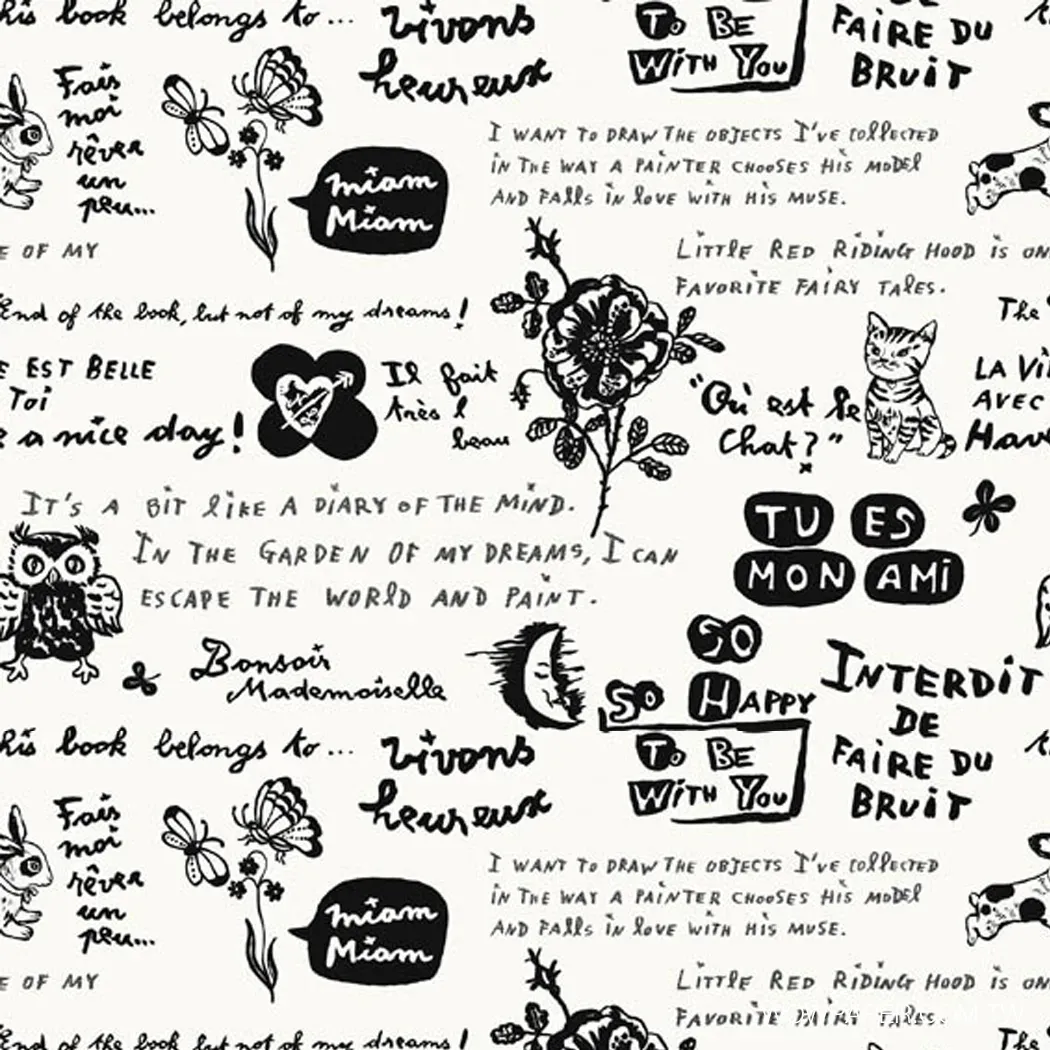 his book belongs to...
vivons
heureux
To Be
With You
FAIRE DU
BRUIT
Fais
moi
rêver
un
peu...
miam
Miam
I WANT TO DRAW THE OBJECTS I'VE COLLECTED
IN THE WAY A PAINTER CHOOSES HIS MODEL
AND FALLS IN LOVE WITH HIS MUSE.
E OF MY
LITTLE RED RIDING HOOD IS ON
FAVORITE FAIRY TALES.
End of the book, but not of my dreams!
The
E EST BELLE
Toi
e a nice day!
Il fait
très
beau
"Où est le
Chat?"
LA Vi
AVEC
Have
IT'S A BIT LIKE A DIARY OF THE MIND.
IN THE GARDEN OF MY DREAMS, I CAN
ESCAPE THE WORLD AND PAINT.
TU ES
MON AMI
Bonsoir
Mademoiselle
SO
SO HAPPY
To Be
With You
INTERDIT
DE
FAIRE DU
BRUIT
his book belongs to...
vivons
heureux
Fais
moi
rêver
un
peu...
miam
Miam
I WANT TO DRAW THE OBJECTS I'VE COLLECTED
IN THE WAY A PAINTER CHOOSES HIS MODEL
AND FALLS IN LOVE WITH HIS MUSE.
E OF MY
LITTLE RED RIDING HOOD IS ON
FAVORITE FAIRY TALES.
End of the book, but not of my dreams!
The